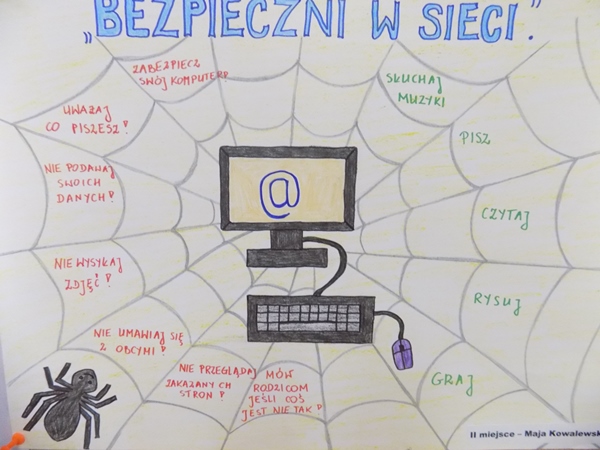 „BEZPIECZNI W SIECI."
ZABEZPIECZ
SWÓJ KOMPUTER!
SŁUCHAJ
MUZYKI
UWAŻAJ
CO PISZESZ!
PISZ
NIE PODAWAJ
SWOICH
DANYCH!
CZYTAJ
@
NIE WYSYŁAJ
ZDJĘĆ!
RYSUJ
NIE UMAWIAJ SIĘ
Z OBCYMI!
NIE PRZEGLĄDAJ
ZAKAZANYCH
STRON!
MÓW
RODZICOM
JEŚLI COŚ
JEST NIE TAK!
GRAJ
II miejsce – Maja Kowalewsk